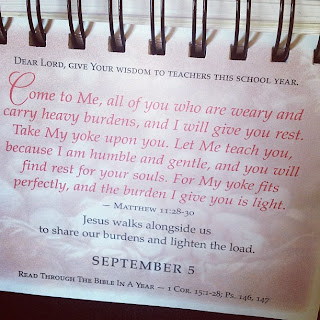 DEAR LORD, GIVE YOUR WISDOM TO TEACHERS THIS SCHOOL YEAR.
Come to Me, all of you who are weary and
carry heavy burdens, and I will give you rest.
Take My yoke upon you. Let Me teach you,
because I am humble and gentle, and you will
find rest for your souls. For My yoke fits
perfectly, and the burden I give you is light.
— MATTHEW 11:28-30
Jesus walks alongside us
to share our burdens and lighten the load.
SEPTEMBER 5
READ THROUGH THE BIBLE IN A YEAR — 1 COR. 15:1-28; PS. 146, 147